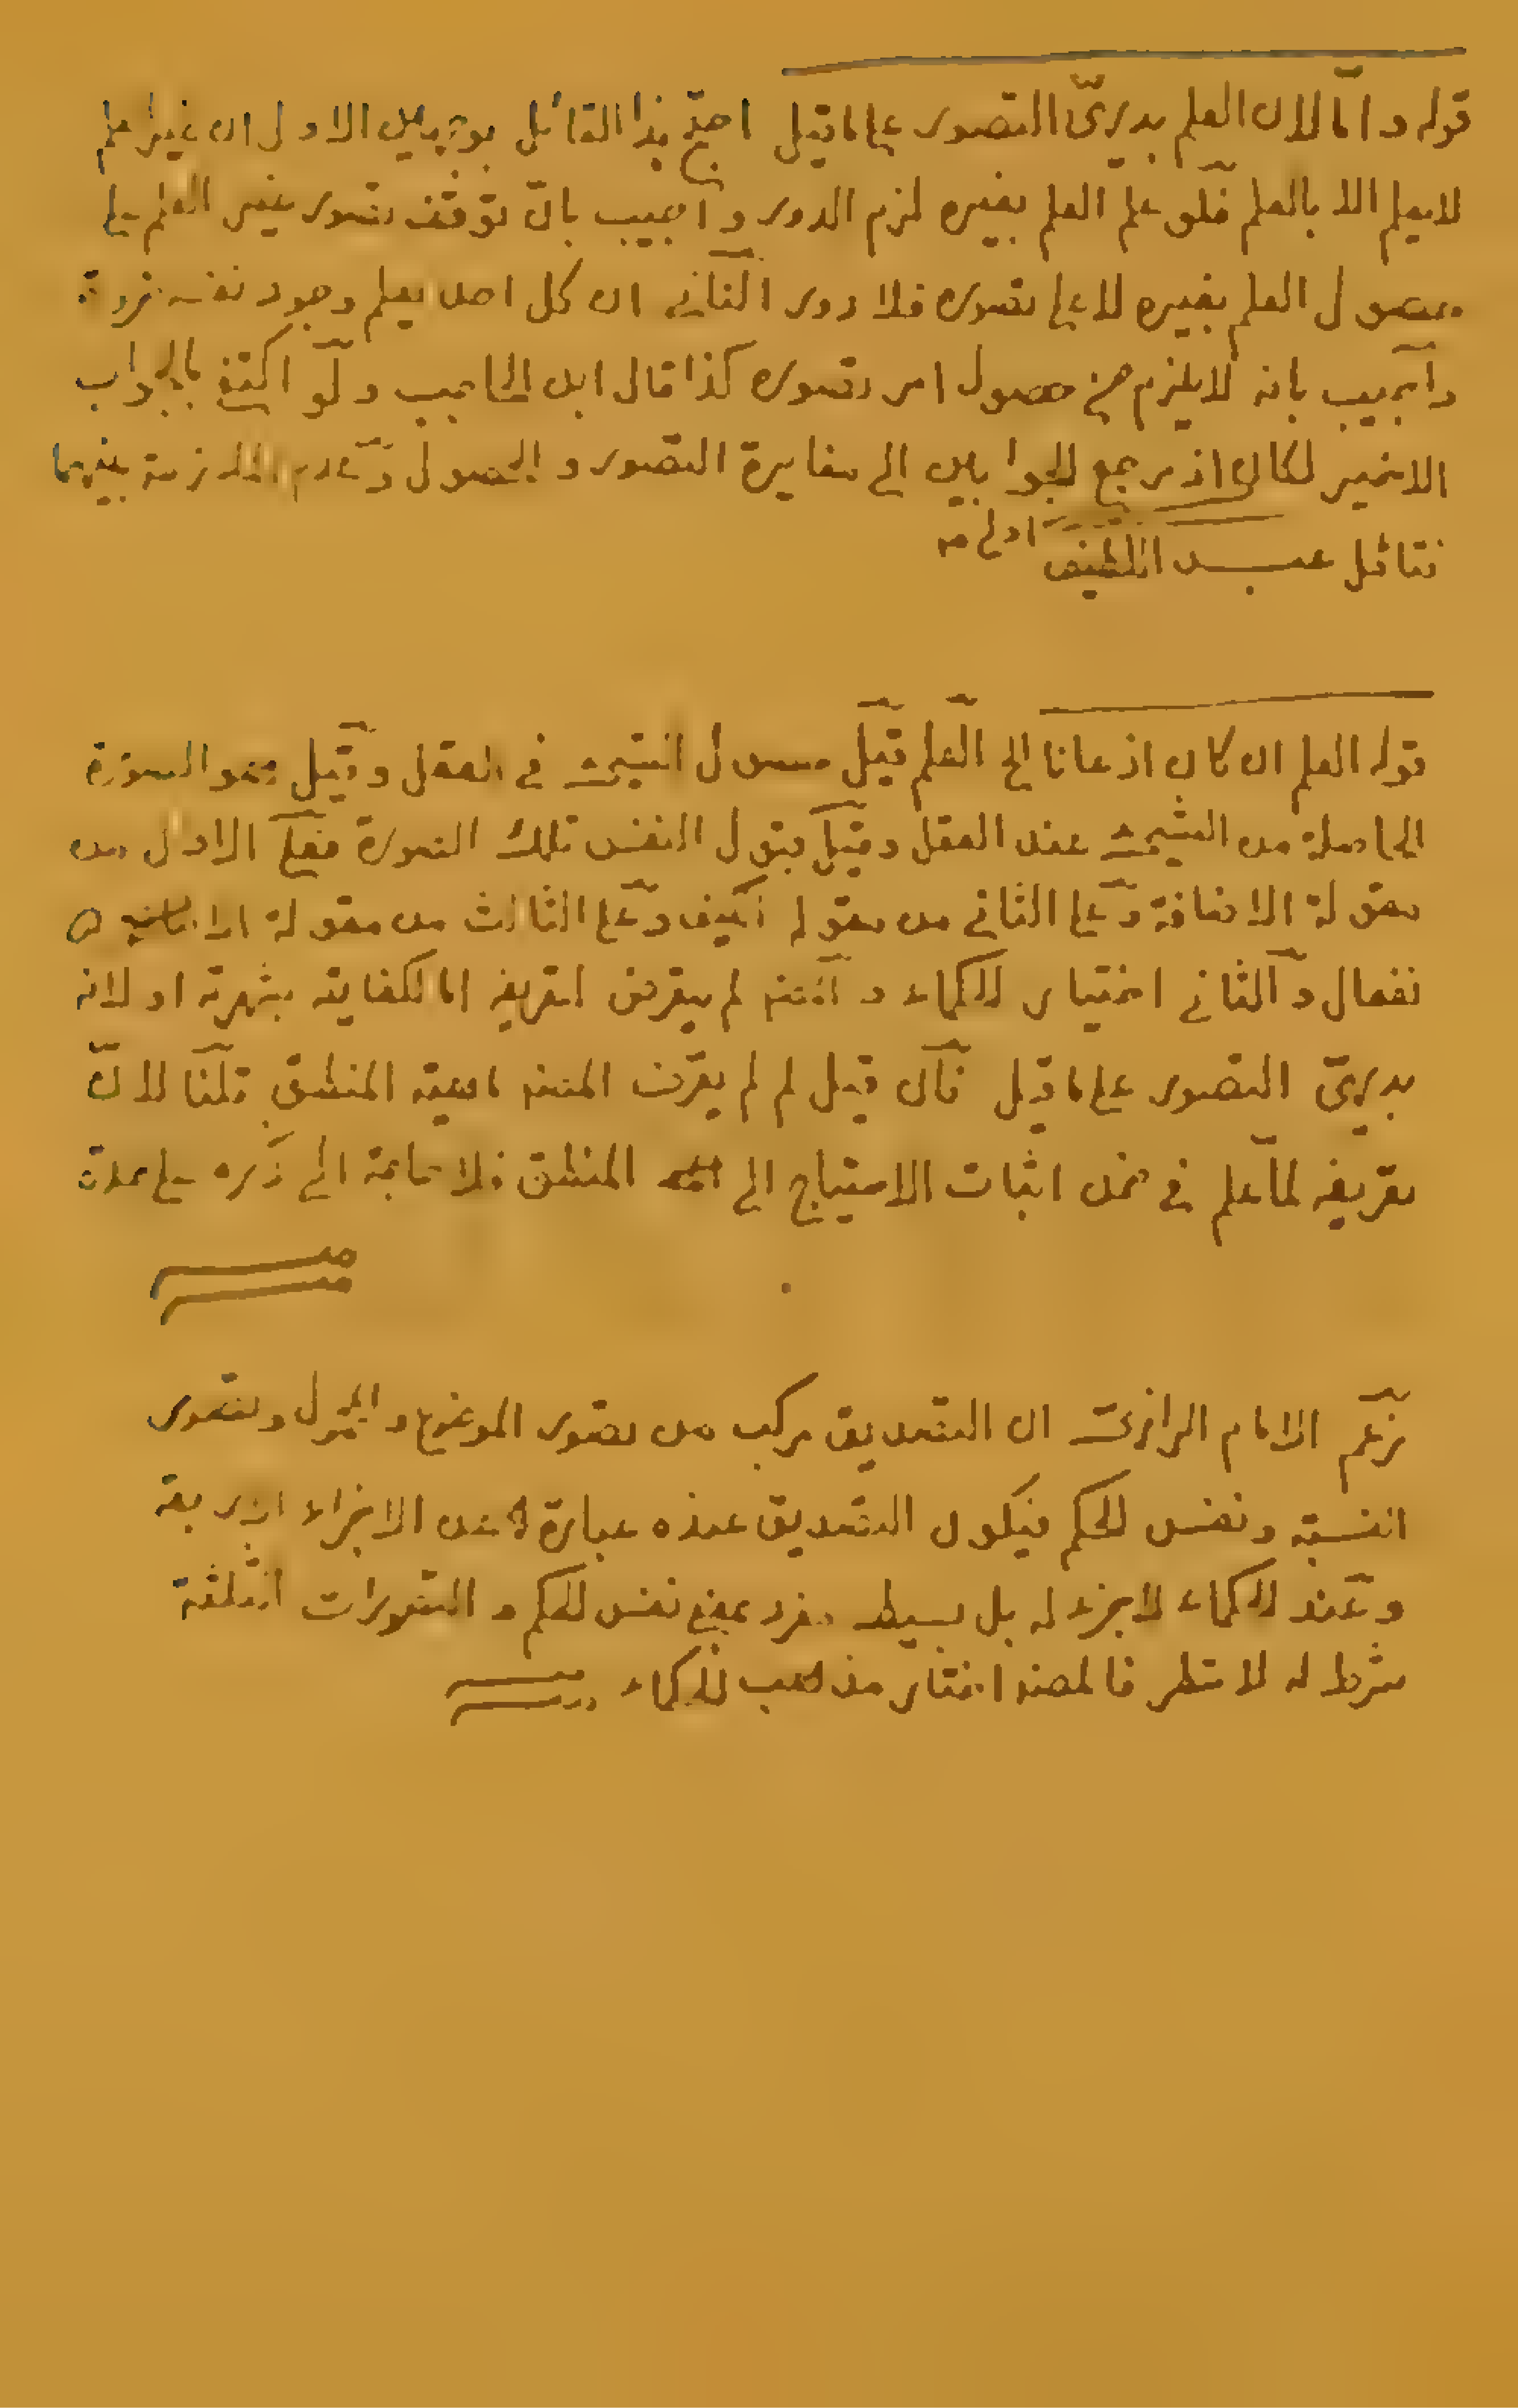 قوله واما لان العلم بديهيّ التصور على ما قيل احتج هذا القائل بوجهين الاول ان غير العلم
لا يعلم الا بالعلم فلو علم العلم بغيره لزم الدور واجيب بانّ توقف تصور غير العلم على
حصول العلم بغيره لا على تصوره فلا دور الثاني ان كل احد يعلم وجود نفسه ضرورة
واجيب بانه لا يلزم من حصول امر تصوره كذا قال ابن الحاجب ولو اكتفى بالجواب
الاخير لكان اذ مرجع الجوابين الى مغايرة التصور والحصول وعدم الملازمة بينهما
فتأمل عبد اللطيف اولى منه
قوله العلم ان كان اذعانا الى العلم قيل حصول الشيئ في العقل وقيل هو الصورة
الحاصلة من الشيئ عند العقل وقيل قبول النفس تلك الصورة فعلى الاول من
مقولة الاضافة وعلى الثاني من مقولة الكيف وعلى الثالث من مقولة الا
نفعال والثاني اختيار الحكماء والمصنف لم يتعرض لتعريفه اما لكفاية شهرته او لانه
بديهيّ التصور على ما قيل فان قيل لم لم يعرف المصنف ماهية المنطق قلنا لانّ
تعريفه لما علم في ضمن اثبات الاحتياج الى المنطق فلا حاجة الى ذكره على حدة
منه
زعم الامام الرازيّ ان التصديق مركب من تصور الموضوع والمحمول وتصور
النسبة ونفس الحكم فيكون التصديق عنده عبارة عن الاجزاء الاربعة
وعند الحكماء لا جزء له بل بسيط مفرد يعني نفس الحكم والتصورات الثلثة
شرط له لا شطر فالمصنف اختار مذهب الحكماء منه